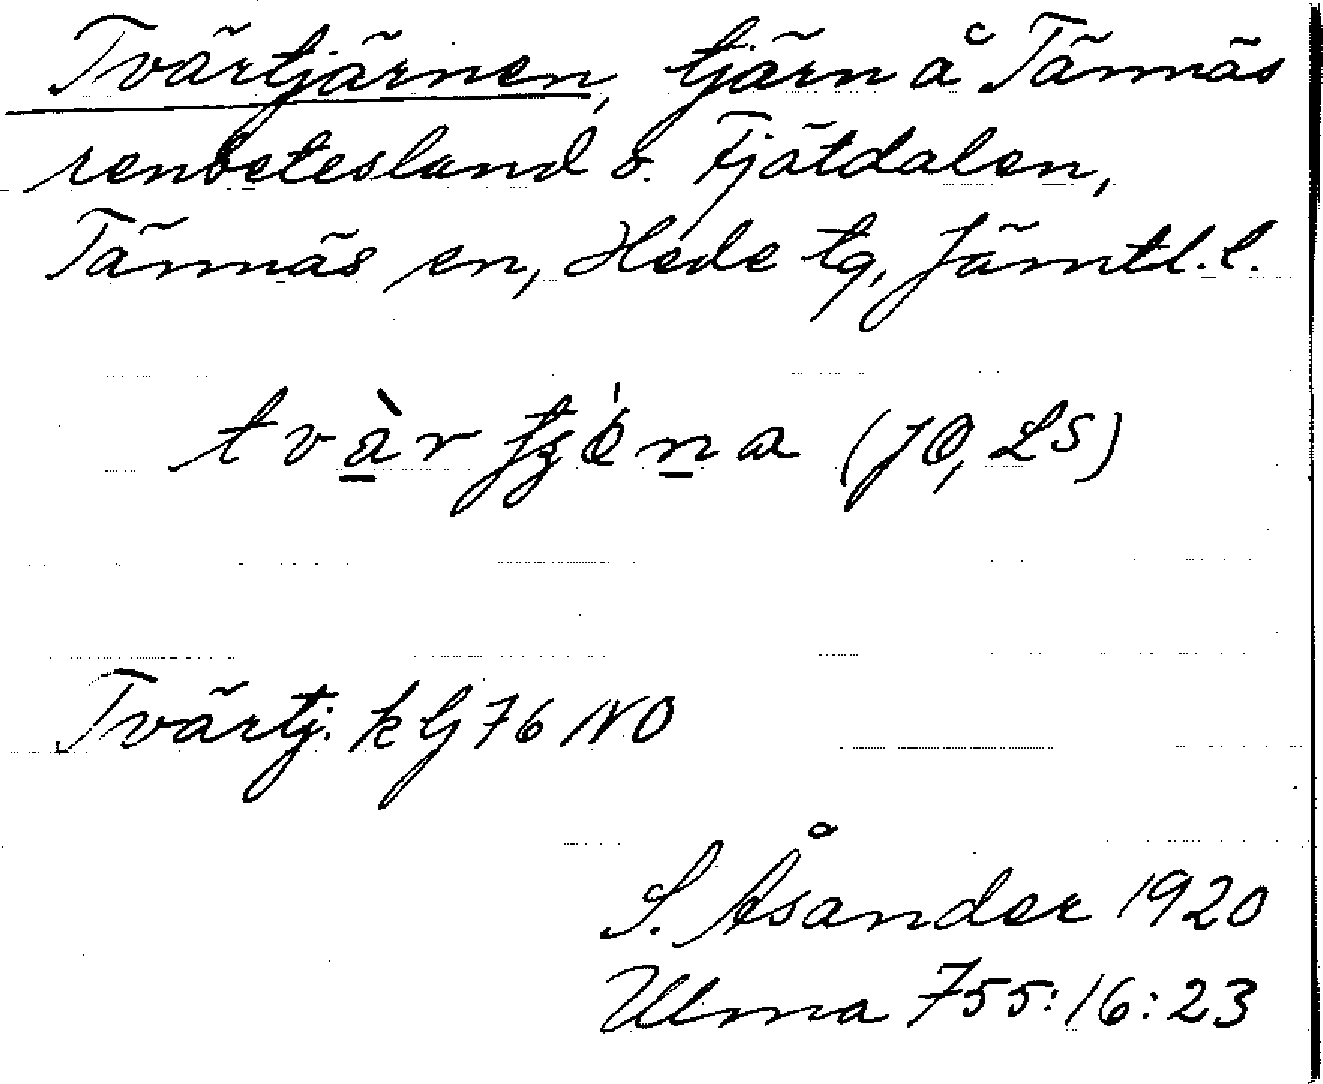 Tvärtjärnen, tjärn å Tännäs
renbetesland o. Fjätdalen,
Tännäs sn, Hede tg, Jämtl. l.
(JO, LS)
Tvärtj. kG 76 NO
S. Åsander 1920
Ulma 755:16:23